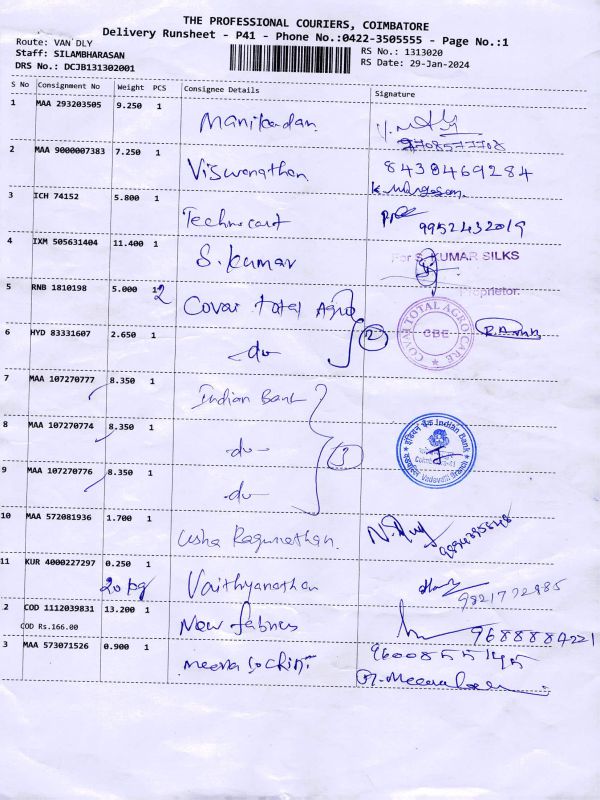 THE PROFESSIONAL COURIERS, COIMBATORE
Delivery Runsheet - P41 - Phone No.:0422-3505555 - Page No.:1
Route: VAN DLY
Staff: SILAMBHARASAN
DRS No.: DCJB131302001
RS No.: 1313020
RS Date: 29-Jan-2024
S No Consignment No Weight PCS Consignee Details Signature
1 MAA 293203505 9.250 1 Manikandan
9708577708
2 MAA 9000007383 7.250 1 Viswanathan 8438469284
3 ICH 74152 5.800 1 Technocart 9952432019
4 IXM 505631404 11.400 1 S. Kumar For S. KUMAR SILKS
Proprietor
5 RNB 1810198 5.000 2 Covai Total Agro
COVAI TOTAL AGRO CARE
CBE
6 HYD 83331607 2.650 1 -do- 2
7 MAA 107270777 8.350 1 Indian Bank
8 MAA 107270774 8.350 1 -do- 3
इंडियन बैंक Indian Bank
Vadavalli
9 MAA 107270776 8.350 1 -do-
10 MAA 572081936 1.700 1 Usha Ragunathan
11 KUR 4000227297 0.250 1 Vaithyanathan
20 kg 9821732985
2 COD 1112039831 13.200 1 New fabnes 9688884221
COD Rs.166.00
3 MAA 573071526 0.900 1 Meena 9600855145